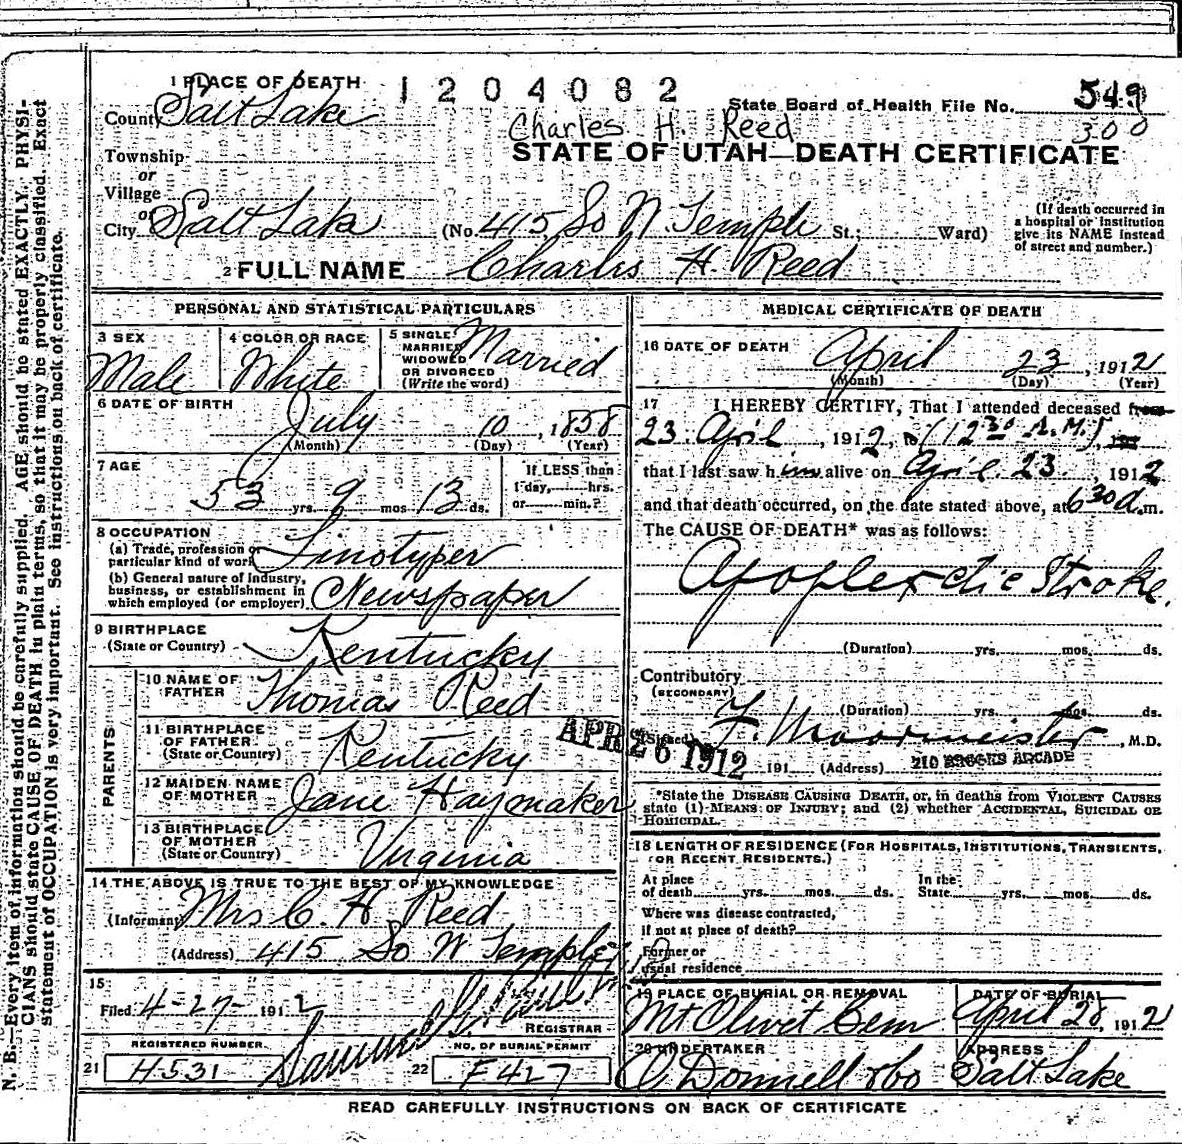 1 PLACE OF DEATH
1204082
State Board of Health File No. 549
County Salt Lake
Charles H. Reed
300
STATE OF UTAH—DEATH CERTIFICATE
Township
or
Village
or
City Salt Lake (No. 415 So W Temple St.; Ward)
(If death occurred in a hospital or institution give its NAME instead of street and number.)
2 FULL NAME Charles H. Reed
PERSONAL AND STATISTICAL PARTICULARS
3 SEX
Male
4 COLOR OR RACE
White
5 SINGLE
MARRIED
WIDOWED
OR DIVORCED
(Write the word)
Married
6 DATE OF BIRTH
July 10, 1858
(Month) (Day) (Year)
7 AGE
53 yrs. 9 mos 13 ds.
If LESS than
1 day, hrs.
or min.?
8 OCCUPATION
(a) Trade, profession or
particular kind of work Linotyper
(b) General nature of industry,
business, or establishment in
which employed (or employer) Newspaper
9 BIRTHPLACE
(State or Country) Kentucky
PARENTS
10 NAME OF
FATHER Thomas Reed
11 BIRTHPLACE
OF FATHER
(State or Country) Kentucky
12 MAIDEN NAME
OF MOTHER Jane Haymaker
13 BIRTHPLACE
OF MOTHER
(State or Country) Virginia
14 THE ABOVE IS TRUE TO THE BEST OF MY KNOWLEDGE
(Informant) Mrs C. H Reed
(Address) 415 So W Temple
15
Filed 4-27- 1912
REGISTRAR
REGISTERED NUMBER
21 H531
NO. OF BURIAL PERMIT
22 F427
MEDICAL CERTIFICATE OF DEATH
16 DATE OF DEATH April 23, 1912
(Month) (Day) (Year)
17 I HEREBY CERTIFY, That I attended deceased from
23 April, 1912, to (12 30 A.M.), 191
that I last saw him alive on April 23, 1912
and that death occurred, on the date stated above, at 6 30 a.m.
The CAUSE OF DEATH* was as follows:
Apoplectic Stroke.
(Duration) yrs. mos. ds.
Contributory
(SECONDARY)
(Duration) yrs. mos. ds.
(Signed) F. Moormeister, M.D.
APR 26 1912 191 (Address) 210 BROOKS ARCADE
*State the DISEASE CAUSING DEATH, or, in deaths from VIOLENT CAUSES
state (1) MEANS OF INJURY; and (2) whether ACCIDENTAL, SUICIDAL OR
HOMICIDAL.
18 LENGTH OF RESIDENCE (FOR HOSPITALS, INSTITUTIONS, TRANSIENTS,
OR RECENT RESIDENTS.)
At place
of death yrs. mos. ds.
In the
State yrs. mos. ds.
Where was disease contracted,
if not at place of death?
Former or
usual residence
19 PLACE OF BURIAL OR REMOVAL
Mt Olivet Cem
DATE OF BURIAL
April 28, 1912
20 UNDERTAKER
O'Donnell & Co
ADDRESS
Salt Lake
READ CAREFULLY INSTRUCTIONS ON BACK OF CERTIFICATE
N. B.—Every item of information should be carefully supplied. AGE should be stated EXACTLY. PHYSI-
CIANS should state CAUSE OF DEATH in plain terms, so that it may be properly classified. Exact
statement of OCCUPATION is very important. See instructions on back of certificate.